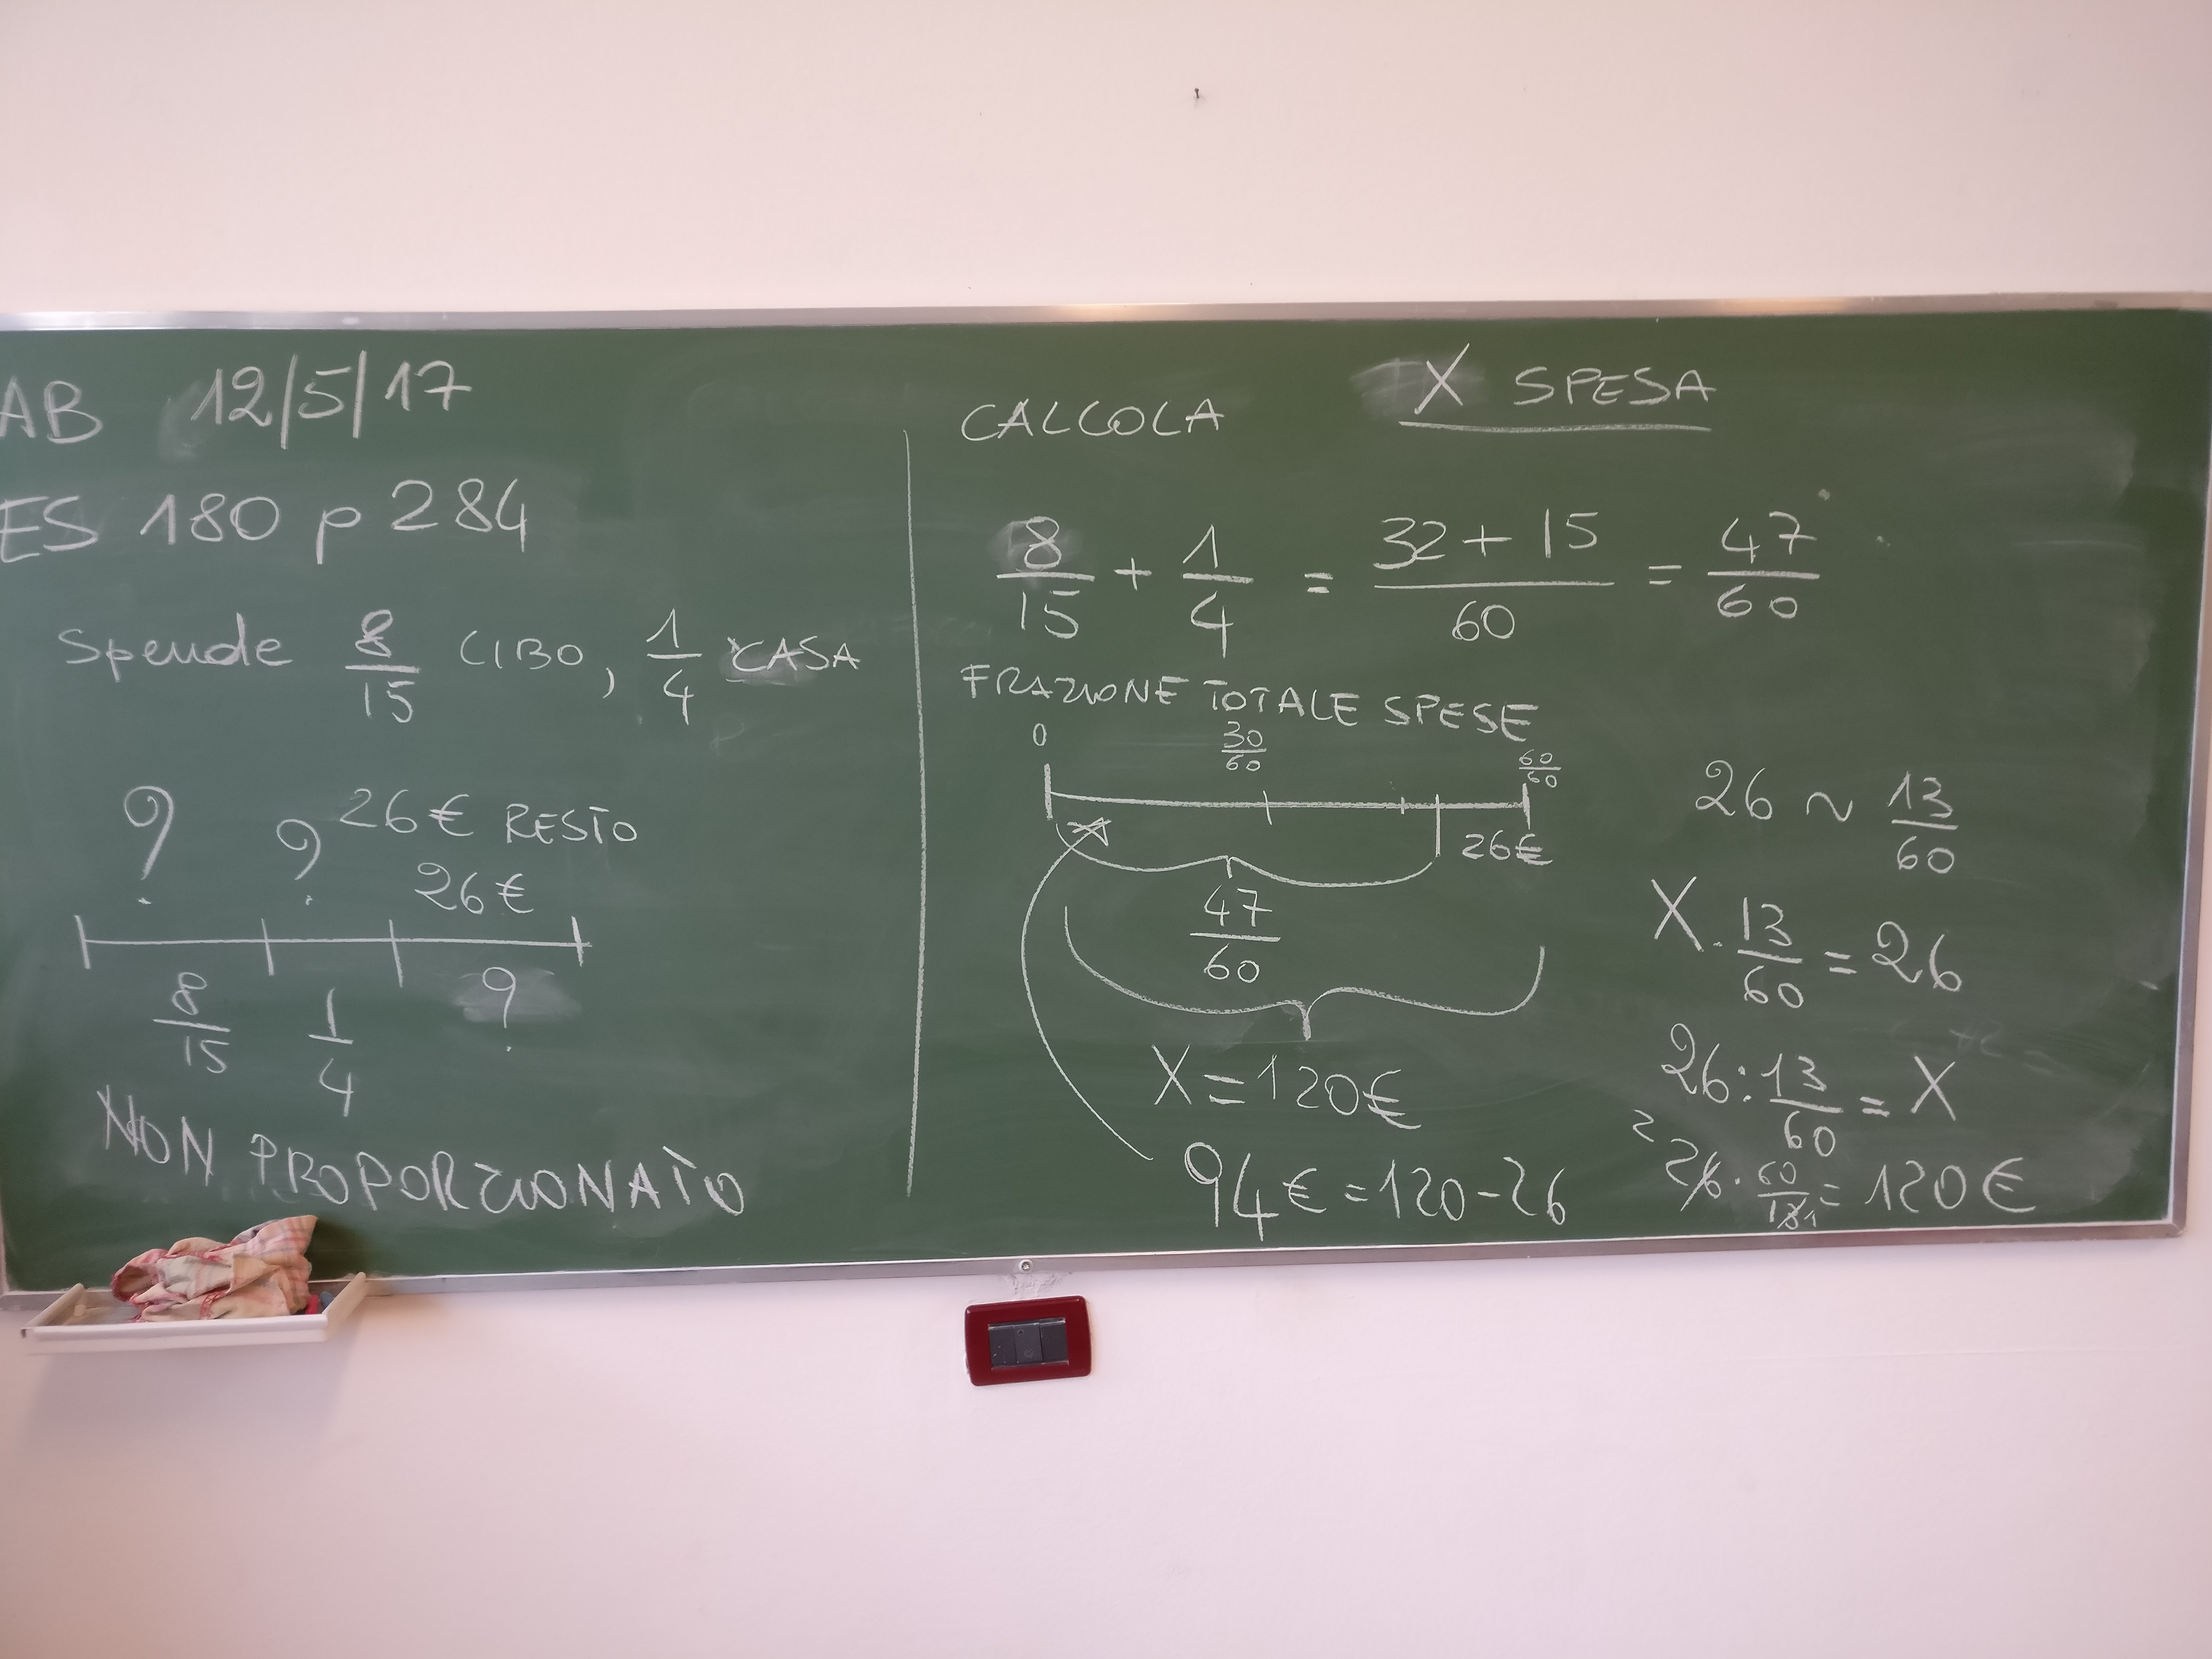 AB 12/5/17
ES 180 p 284
Spende 8/15 CIBO, 1/4 CASA
? ? 26€ RESTO
26€
8/15 1/4 ?
NON PROPORZIONATO
CALCOLA X SPESA
8/15 + 1/4 = (32 + 15)/60 = 47/60
FRAZIONE TOTALE SPESE
0 30/60 60/60
26€
47/60
X = 120€
94€ = 120 - 26
26 ~ 13/60
X · 13/60 = 26
26 : 13/60 = X
2 26 · 60/13 1 = 120€